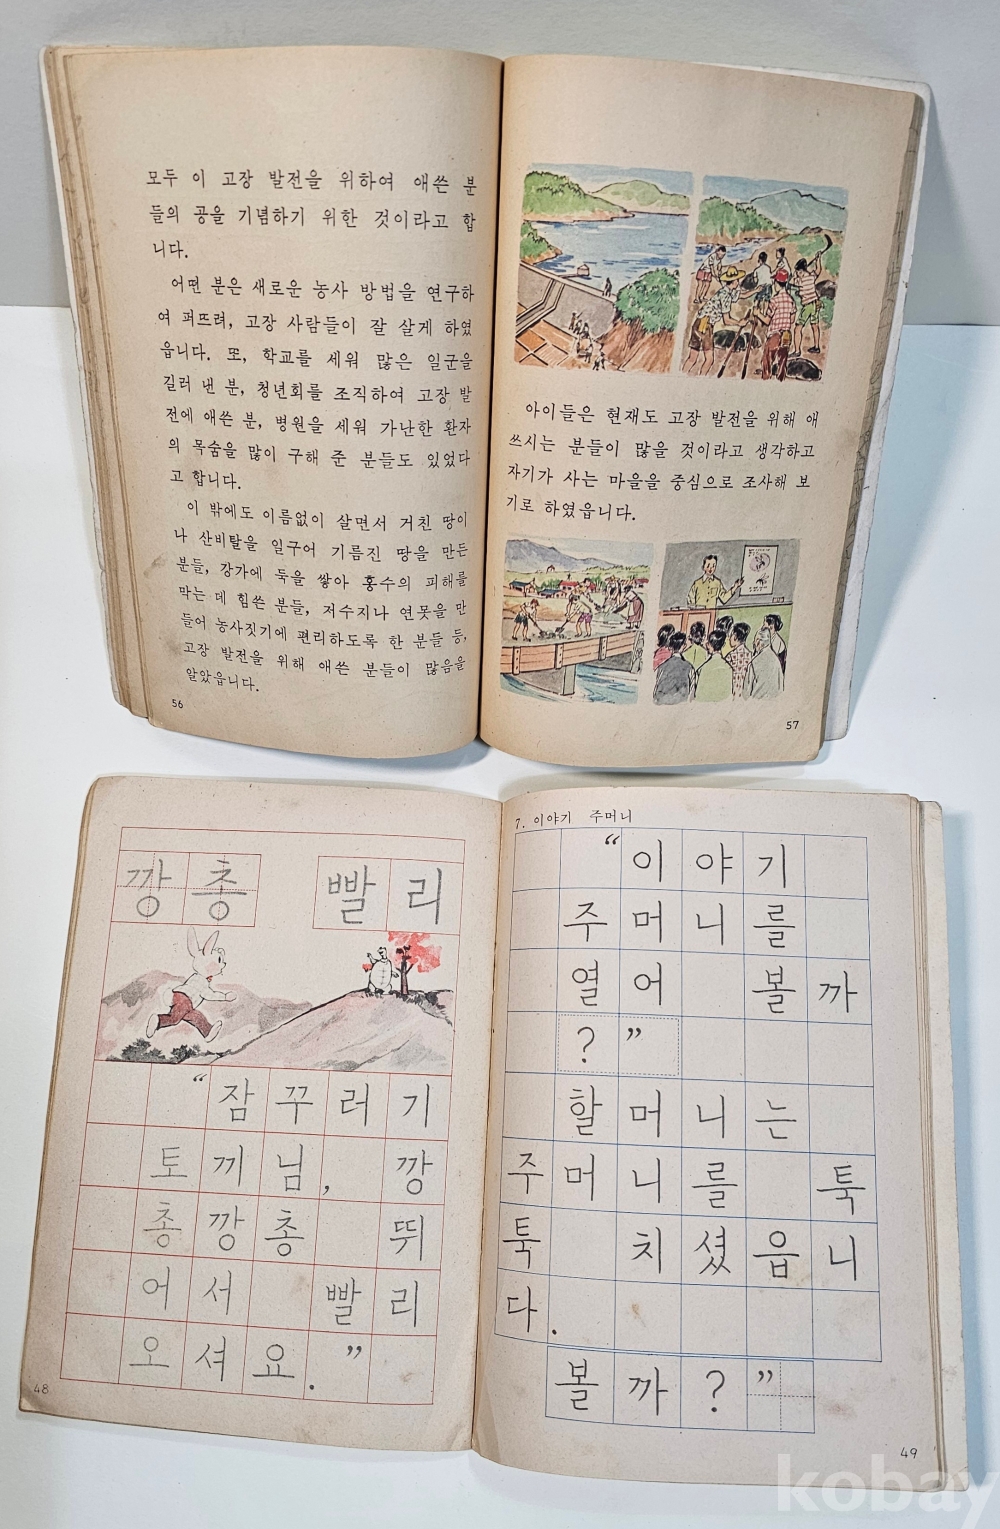 모두 이 고장 발전을 위하여 애쓴 분
들의 공을 기념하기 위한 것이라고 합
니다.
어떤 분은 새로운 농사 방법을 연구하
여 퍼뜨려, 고장 사람들이 잘 살게 하였
읍니다. 또, 학교를 세워 많은 일군을
길러 낸 분, 청년회를 조직하여 고장 발
전에 애쓴 분, 병원을 세워 가난한 환자
의 목숨을 많이 구해 준 분들도 있었다
고 합니다.
이 밖에도 이름없이 살면서 거친 땅이
나 산비탈을 일구어 기름진 땅을 만든
분들, 강가에 둑을 쌓아 홍수의 피해를
막는 데 힘쓴 분들, 저수지나 연못을 만
들어 농사짓기에 편리하도록 한 분들 등,
고장 발전을 위해 애쓴 분들이 많음을
알았읍니다.
56
아이들은 현재도 고장 발전을 위해 애
쓰시는 분들이 많을 것이라고 생각하고
자기가 사는 마을을 중심으로 조사해 보
기로 하였읍니다.
57
깡총 빨리
“잠꾸러기
토끼님, 깡
총깡총 뛰
어서 빨리
오셔요.”
48
7. 이야기 주머니
“이야기
주머니를
열어 볼까
?”
할머니는
주머니를 툭
툭 치셨읍니
다.
볼까?”
49
kobay